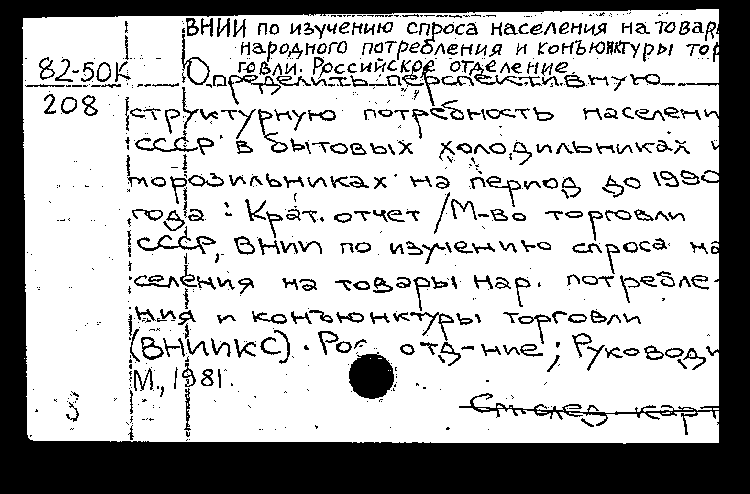 ВНИИ по изучению спроса населения на товар
народного потребления и конъюнктуры тор
говли. Российское отделение
82-50К Определить перспективную
208 структурную потребность населени
СССР в бытовых холодильниках и
морозильниках на период до 1990
года : Крат. отчет / М-во торговли
СССР, ВНИИ по изучению спроса на
селения на товары нар. потребле-
ния и конъюнктуры торговли
(ВНИИКС). Рос. отд-ние ; Руководи
М., 1981.
См. след. карт